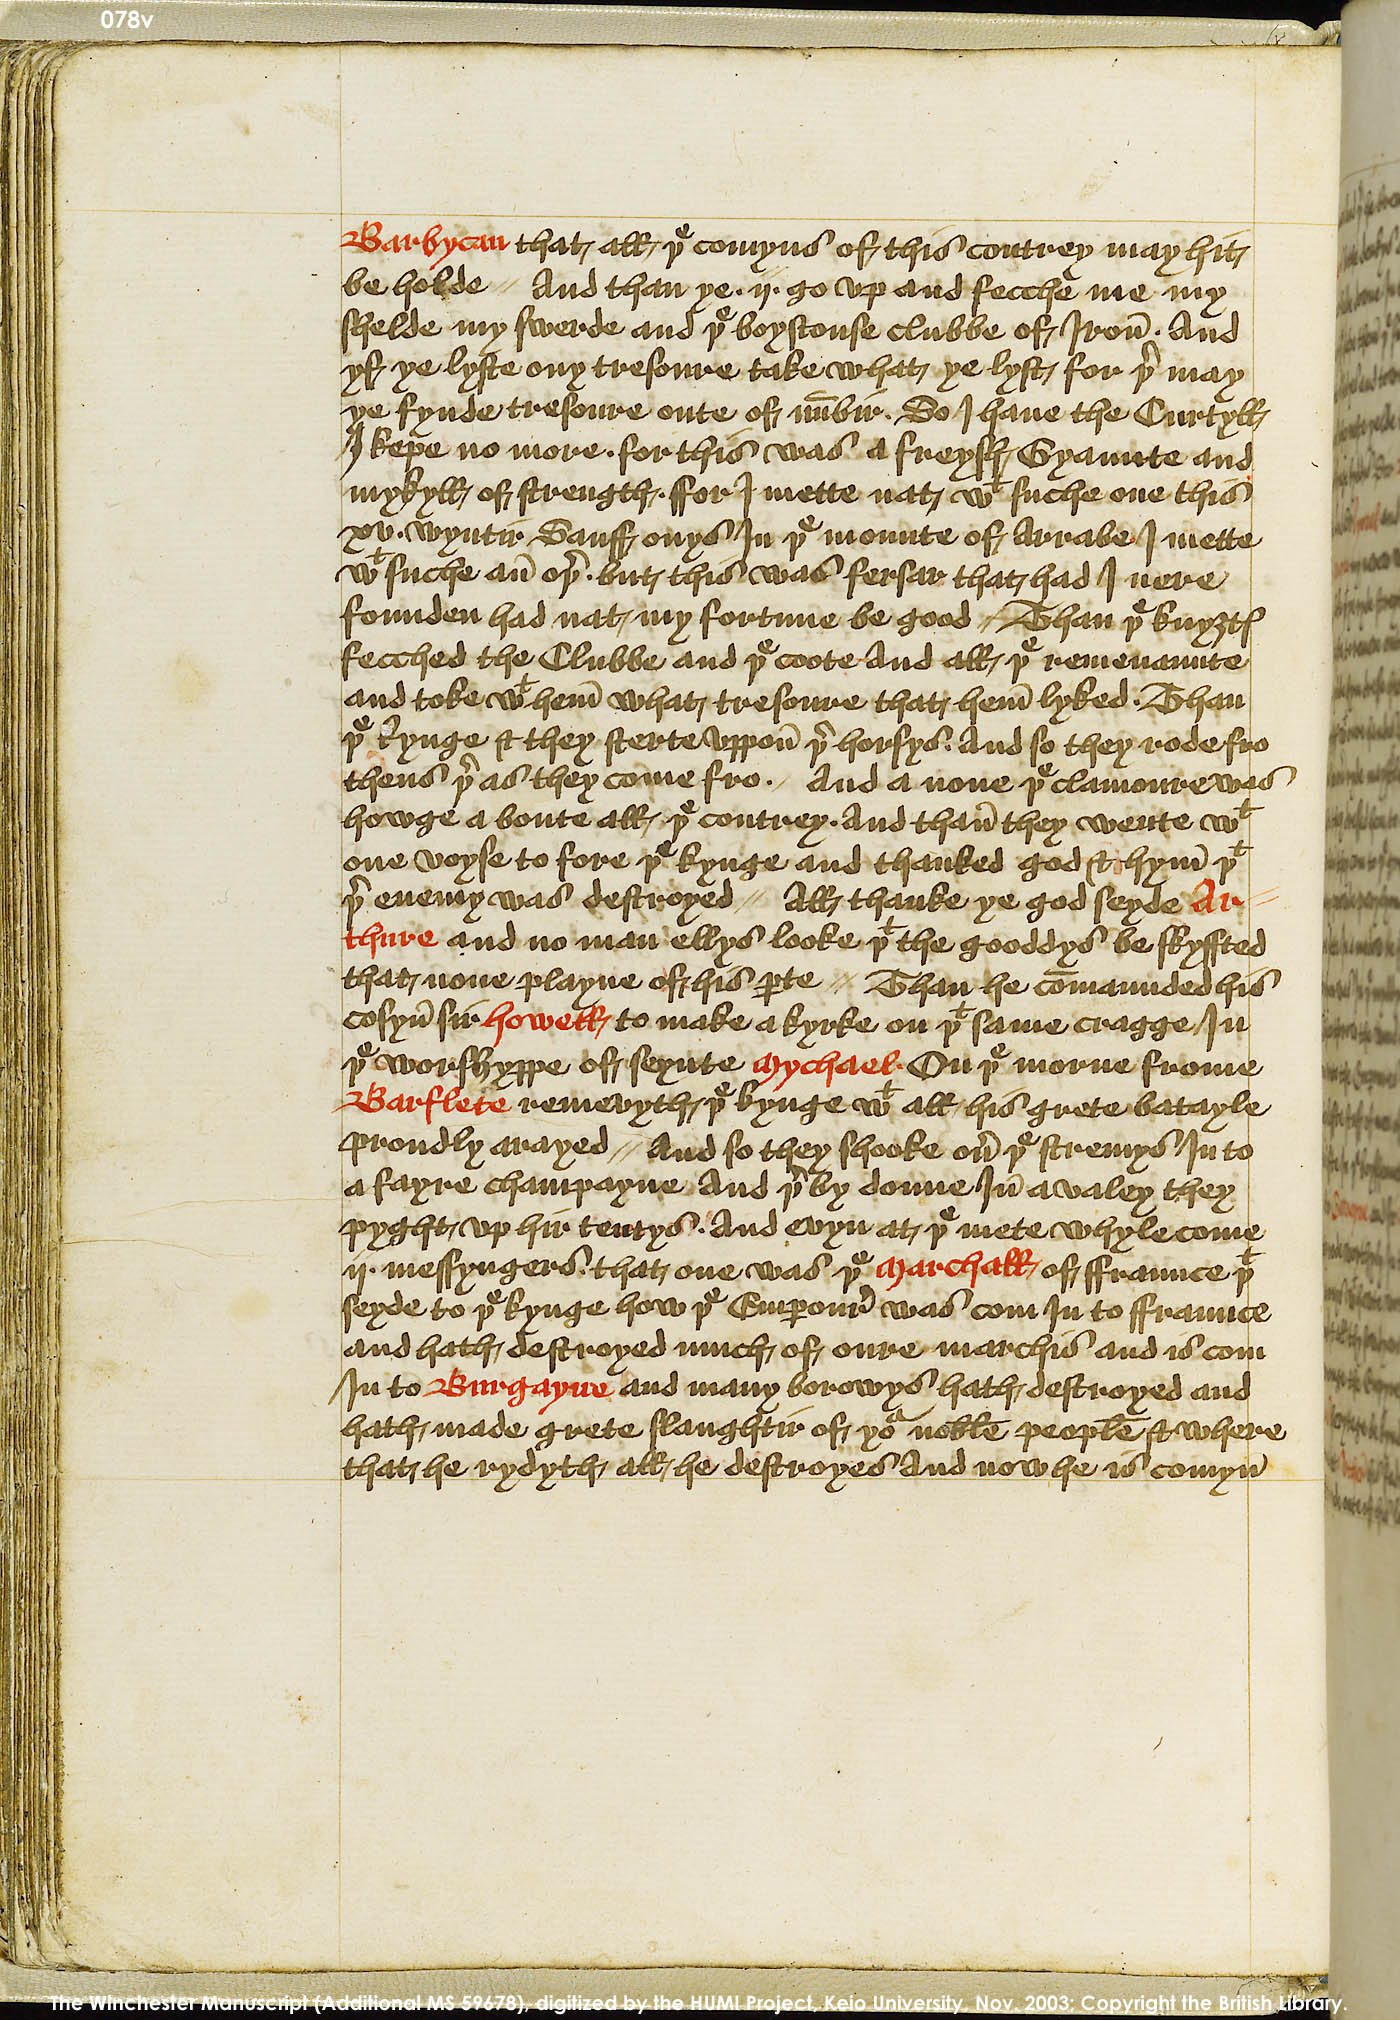 078v
Barbycan that all þͤ comyns of this contrey may hit
be holde // And than ye .ij. go vp and fecche me my
shelde my swerde and þͤ boystouse clubbe of Iron̄ . And
yf ye lyste ony tresoure take what ye lyst for þ̉ may
ye fynde tresoure oute of nūbir . So I haue the Curtyll
I kepe no more . for this was a freysh Gyaunte and
mykyll of strength . ffor I mette nat wᵗ suche one this
xv . wyntir Sauff onys In þͤ mounte of Arrabe I mette
wᵗ suche an̄ oþ̉ . but this was fersar that had I nere
founden had nat my fortune be good // Than þͤ knyȝtꝭ
fecched the Clubbe and þͤ coote And all þͤ remenaunte
and toke wᵗ hem̄ what tresoure that hem̄ lyked . Than
þͤ kynge & they sterte vppon̄ þ̉ horsys . And so they rode fro
thens þ̉ as they come fro . // And a none þͤ clamoure was
howge a boute all þͤ contrey . And than̄ they wente wᵗ
one voyse to fore þͤ kynge and thanked god & hym̄ þᵗ
þ̉ enemy was destroyed // All thanke ye god seyde Ar=
thure and no man ellys looke þᵗ the gooddys be skyffted
that none playne of his ꝑte // Than he cōmaunded his
cosyn̄ sir howell to make a kyrke on þᵗ same cragge In
þͤ worshyppe of seynte Mychael . On þͤ morne frome
Barflete remevyth þͤ kynge wᵗ all his grete batayle
proudly arayed // And so they shooke oū þͤ stremys In to
a fayre champayne And þ̉ by doune In̄ a valey they
pyght vp hir tentys . And evyn at þͤ mete whyle come
ij . messyngers . that one was þͤ Marchall of ffraunce þᵗ
seyde to þͤ kynge how þͤ Emꝑour̉ was com In to ffraunce
and hath destroyed much of oure marchis and is com
In to Burgayne and many borowys hath destroyed and
hath made grete slaughtir of yoᵘ noble people & where
that he rydyth all he destroyes And now he is comyn̄
The Winchester Manuscript (Additional MS 59678), digitized by the HUMI Project, Keio University, Nov. 2003; Copyright the British Library.